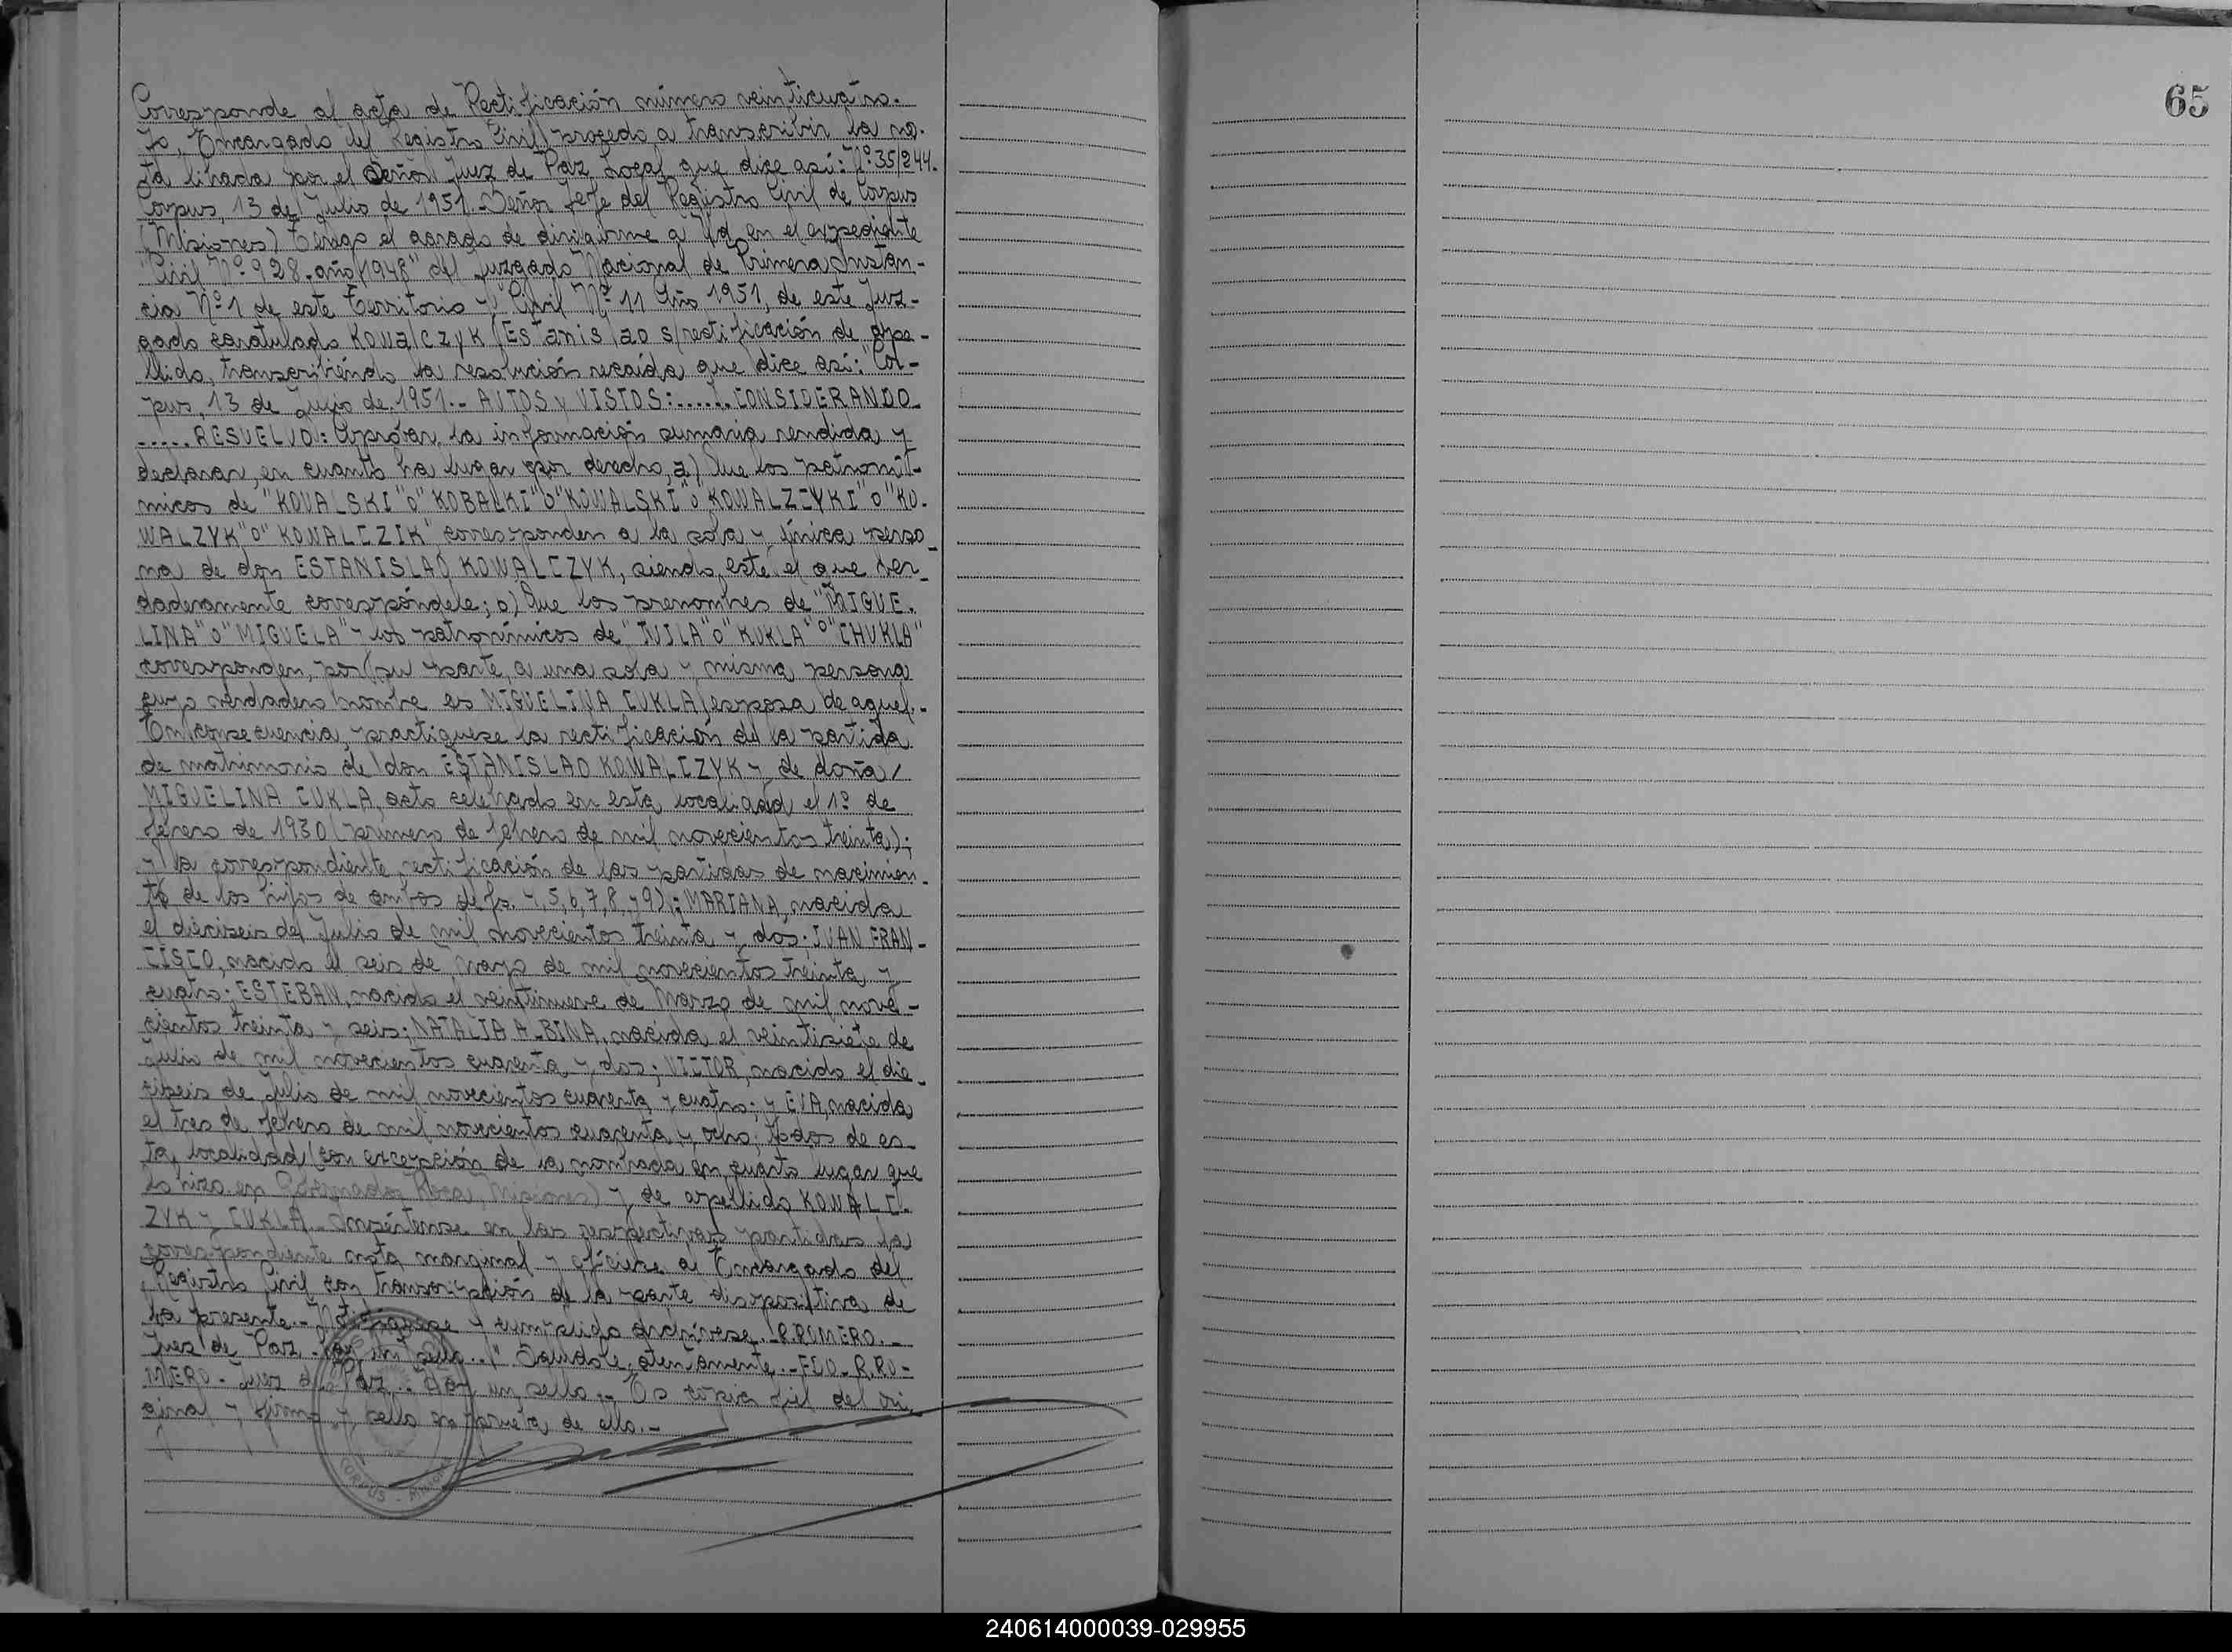 Corresponde al acta de Rectificación número veinticuatro.
Yo, Encargado del Registro Civil, procedo a transcribir la no-
ta librada por el Señor Juez de Paz Local que dice así: Nº 35/244.
Corpus, 13 de Julio de 1951. Señor Jefe del Registro Civil de Corpus
(Misiones) Tengo el agrado de dirigirme a Ud. en el expediente
"Civil Nº 928. año 1948" del Juzgado Nacional de Primera Instan-
cia Nº 1 de este Territorio y Civil Nº 11 Año 1951, de este Juz-
gado caratulado KOWalCZyK EStanislao s/rectificación de ape-
llido, transcribiéndo la resolución recaída que dice así: "Cor-
pus, 13 de Julio de 1951.- AUTOS y VISTOS:...... CONSIDERANDO
..... RESUELVO: Aprobar la información sumaria rendida y
declarar, en cuanto ha lugar por derecho, a) Que los patroní-
micos de "KOVALSKI" o "KOBALKI" o "KOWALSKI" o "KOWALZCYKI" o "KO-
WALZYK" o "KOWALCZIK" corresponden a la sola y única perso-
na de don ESTANISLAO KOWALCZYK, siendo este el que ver-
daderamente correspóndele; b) Que los prenombres de "MIGUE-
LINA" o "MIGUELA" y los patronímicos de "TUILA" o "KUKLA" o "CHUKLA"
corresponden, por su parte, a una sola y misma persona
cuyo verdadero nombre es MIGUELINA CUKLA, esposa de aquel.-
En consecuencia, practíquese la rectificación de la partida
de matrimonio de don ESTANISLAO KOWALCZYK y de doña/
MIGUELINA CUKLA, acto celebrado en esta localidad el 1º de
febrero de 1930 (primero de febrero de mil novecientos treinta);
y la correspondiente rectificación de las partidas de nacimien-
to de los hijos de ambos de fs. 4, 5, 6, 7, 8 y 9): MARIANA, nacida
el dieciseis de Julio de mil novecientos treinta y dos; JUAN FRAN-
CISCO, nacido el seis de Mayo de mil novecientos treinta y
cuatro; ESTEBAN, nacido el veintinueve de Marzo de mil nove-
cientos treinta y seis; NATALIA ALBINA, nacida el veintisiete de
Julio de mil novecientos cuarenta y dos; VICTOR, nacido el die-
ciseis de Julio de mil novecientos cuarenta y cuatro; y EVA, nacida
el tres de febrero de mil novecientos cuarenta y ocho; todos de es-
ta localidad (con excepción de la nombrada en cuarto lugar que
lo hizo en Gobernador Roca, Misiones) y de apellido KOWALC-
ZYK y CUKLA.- Insértense en las respectivas partidas la
correspondiente nota marginal y ofíciese al Encargado del
Registro Civil con transcripción de la parte dispositiva de
la presente.- Notifíquese y cumplido archívese.- R. ROMERO.-
Juez de Paz.- Hay un sello.." Saludole atentamente.- FDO.- R. RO-
MERO.- Juez de Paz.- Hay un sello.- Es copia fiel del ori-
ginal y firmo y sello en prueba de ello.-
CORPUS - MISIONES
65
240614000039-029955